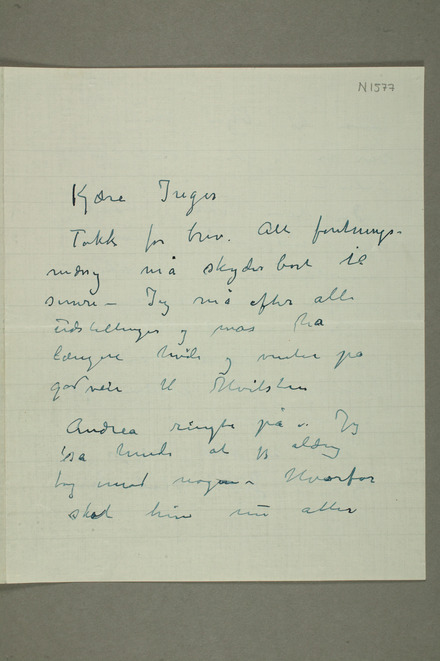 N 1577
Kjære Inger
Takk for brev. All forretnings-
må skydes bort til
senere – Jeg må efter alle
udstillinger og mas ha
længere hvile og vente på
godveir til Hvitsten
Andrea ringte på – Jeg
sa hende at jeg aldrig
tog mod nogen – Hvorfor
skal hun nu atter